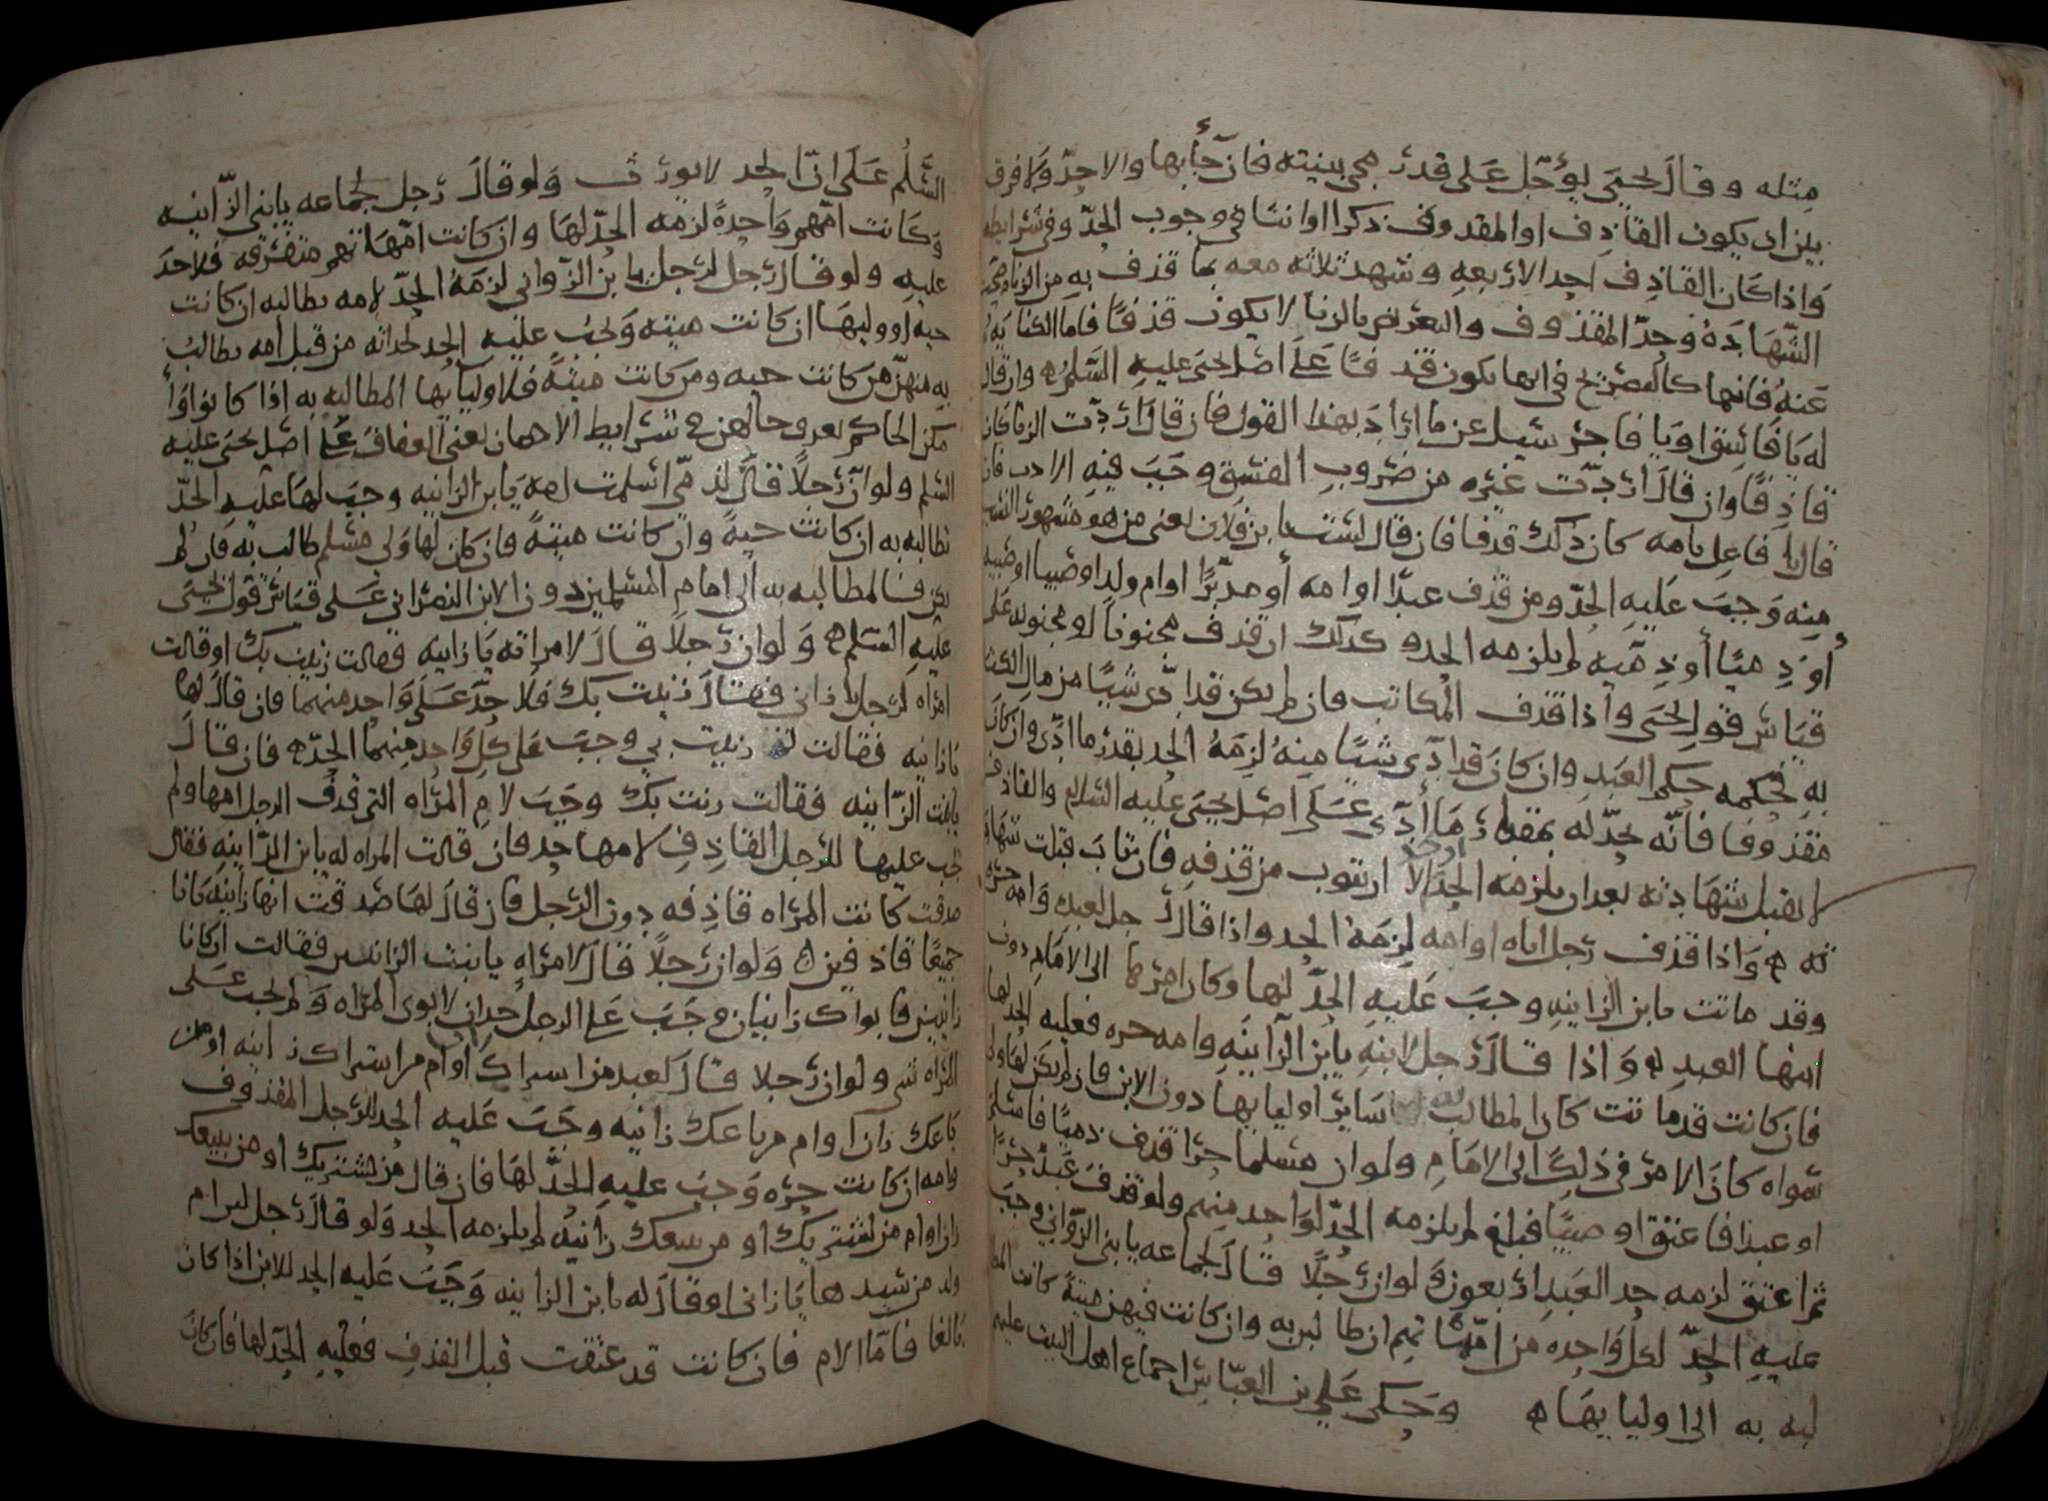 مثله وقال يحيى يؤجل على قدر مجي بينته فان جأ بها والا حد ولا فرق
بين ان يكون القاذف او المقدوف ذكرا او انثا في وجوب الحد وفي شرايطه
واذا كان القاذف احد الاربعه وشهد ثلاثه معه بما قذف به من الزنا
الشهادة وحد المقذوف والتعريض بالزنا لا يكون قذفا فاما الكنايه
عنه فانها كالتصريح في انها تكون قذفا على اصل يحيى عليه السلم وان قال
له يا فاسق او يا فاجر سيل عن ما اراد بهذا القول فان قال اردت الزنا كان
قاذفا وان قال اردت غيره من ضروب الفسق وجب فيه الادب فان
قال يا فاعل بامه كان ذلك قدفا فان قال لست ابن فلان يعني من هو مشهور النسب
منه وجب عليه الحد ومن قذف عبدا او امه أو مدبرا او ام ولد او صبيا او صبيه
أو ذميا أو ذميه لم يلزمه الحد وكذلك ان قذف مجنونا او مجنونه على
قياس قول يحيى واذا قذف المكاتب فان لم يكن قد ادى شيا من مال الكتا
به فحكمه حكم العبد وان كان قد ادى شيا منه لزمه الحد بقدر ما ادى وان كان
مقذوفا فانه يحد له بمقدار ما أدى على اصل يحيى عليه السلام والقاذف
لا تقبل شهادته بعد ان يلزمه الحد الا ان يتوب من قذفه فان تاب قبلت شهاد
ته واذا قذف رجل اباه او امه لزمه الحد واذا قال رجل لعبده وامه حره
وقد ماتت يا بن الزانيه وجب عليه الحد لها وكان امرها الى الامام دون
ابنها العبد واذا قال رجل لابنه يا بن الزانيه وامه حره فعليه الحد لها
فان كانت قد ماتت كان المطالب له ساير اوليايها دون الابن فان لم يكن لها ولي
سواه كان الامر في ذلك الى الامام ولو ان مسلما حرا قذف ذميا فاسلم
او عبدا فاعتق او صبيا فبلغ لم يلزمه الحد لواحد منهم ولو قذف عبد حرا
ثم اعتق لزمه حد العبد اربعون ولو ان رجلا قال لجماعه يا بني الزواني وجب
عليه الحد لكل واحده من امهاتهم ان طالبن به وان كانت فيهن ميتة كانت المطا
لبه به الى اوليايها وحكى علي بن العباس اجماع اهل البيت عليهم
السلم على ان الحد لا يورث ولو قال رجل لجماعه يا بني الزانيه
وكانت امهم واحدة لزمه الحد لها وان كانت امهاتهم متفرقه فلا حد
عليه ولو قال رجل لرجل يا بن الزواني لزمه الحد لامه تطالبه ان كانت
حيه او وليها ان كانت ميته ويجب عليه الحد لجداته من قبل أمه يطالب
به منهن من كانت حيه ومن كانت ميتة فلاوليايها المطالبه به اذا كانوا
مكن الحاكم بعد حالهن في شرايط الاحصان يعني العفاف على اصل يحيى عليه
السلم ولو ان رجلا قال لذمي اسلمت امه يا بن الزانيه وجب لها عليه الحد
تطالبه به ان كانت حية وان كانت ميتة فان كان لها ولي مسلم طالب به فان لم
يكن فالمطالبه به الى امام المسلمين دون الابن النصراني على قياس قول يحيى
عليه السلم ولو ان رجلا قال لامراته يا زانيه فقالت زنيت بك او قالت
امراه لرجل يا زاني فقال زنيت بك فلا حد على واحد منهما فان قال لها
يا زانيه فقالت زنيت بي وجب على كل واحد منهما الحد فان قال
يا بنت الزانيه فقالت زنت بك وجب لام المراه التي قذف الرجل امها ولم
يجب عليها للرجل القاذف لامها حد فان قالت المراه له يا بن الزانيه فقال
صدقت كانت المراه قاذفه دون الرجل فان قال لها صدقت انها زانيه كانا
جميعا قاذفين ولو ان رجلا قال لامراه يا بنت الزانيين فقالت ان كانا
زانيين فابواك زانيان وجب على الرجل حدان لابوي المراه ولم يجب على
المراه شي ولو ان رجلا قال لعبد من اشتراك او ام من اشتراك زانيه او من
باعك زان او ام من باعك زانيه وجب عليه الحد للرجل المقذوف
وامه ان كانت حره وجب عليه الحد لها فان قال من يشتريك او من يبيعك
زان او ام من يشتريك او من يبيعك زانيه لم يلزمه الحد ولو قال رجل لابن ام
ولد من سيدها يا زاني او قال له يا بن الزانيه وجب عليه الحد للابن اذا كان
بالغا فاما الام فان كانت قد عتقت قبل القذف فعليه الحد لها فان كان